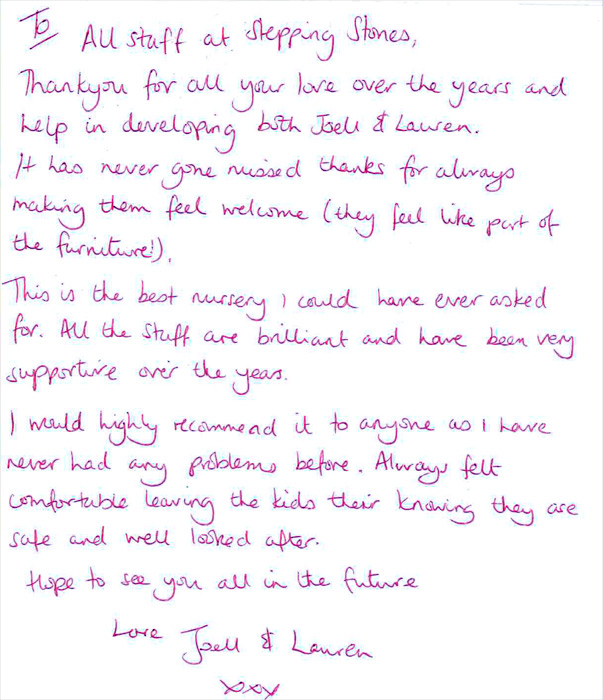 To
All staff at Stepping Stones,
Thankyou for all your love over the years and
help in developing both Joell & Lauren.
It has never gone missed thanks for always
making them feel welcome (they feel like part of
the furniture!),
This is the best nursery I could have ever asked
for. All the staff are brilliant and have been very
supportive over the years.
I would highly recommend it to anyone as I have
never had any problems before. Always felt
comfortable leaving the kids their knowing they are
safe and well looked after.
Hope to see you all in the future
Love Joell & Lauren
xxx